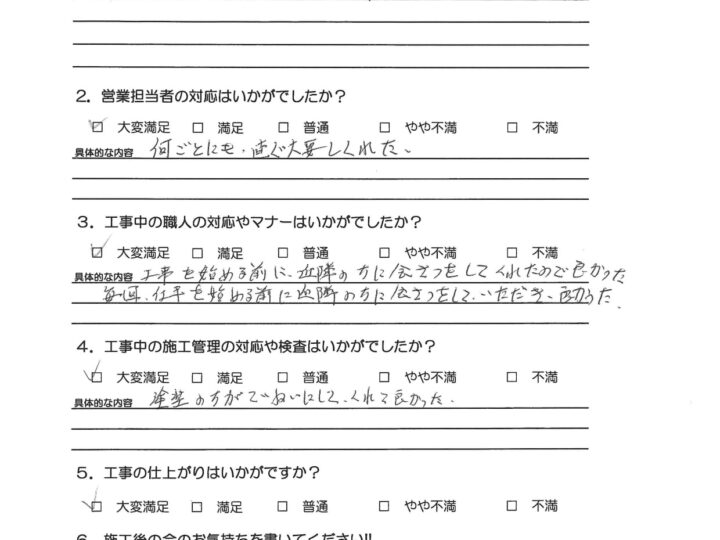 2. 営業担当者の対応はいかがでしたか?
☑ 大変満足 □ 満足 □ 普通 □ やや不満 □ 不満
具体的な内容 何ごとにも、直ぐ大要しくれた、
3. 工事中の職人の対応やマナーはいかがでしたか?
☑ 大変満足 □ 満足 □ 普通 □ やや不満 □ 不満
具体的な内容 工事を始める前に、近隣の方に会さつをしてくれたので良かった
毎回、仕事を始める前に近隣の方に会さつをして、いただき、良かった、
4. 工事中の施工管理の対応や検査はいかがでしたか?
☑ 大変満足 □ 満足 □ 普通 □ やや不満 □ 不満
具体的な内容 塗装の方がていねいにして、くれて良かった、
5. 工事の仕上がりはいかがですか?
☑ 大変満足 □ 満足 □ 普通 □ やや不満 □ 不満
6. 施工後の今のお気持ちを書いてください!!